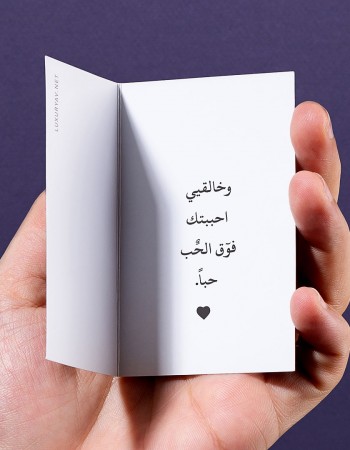 وخالقيي
احببتك
فوٓق الحٌب
حباً.